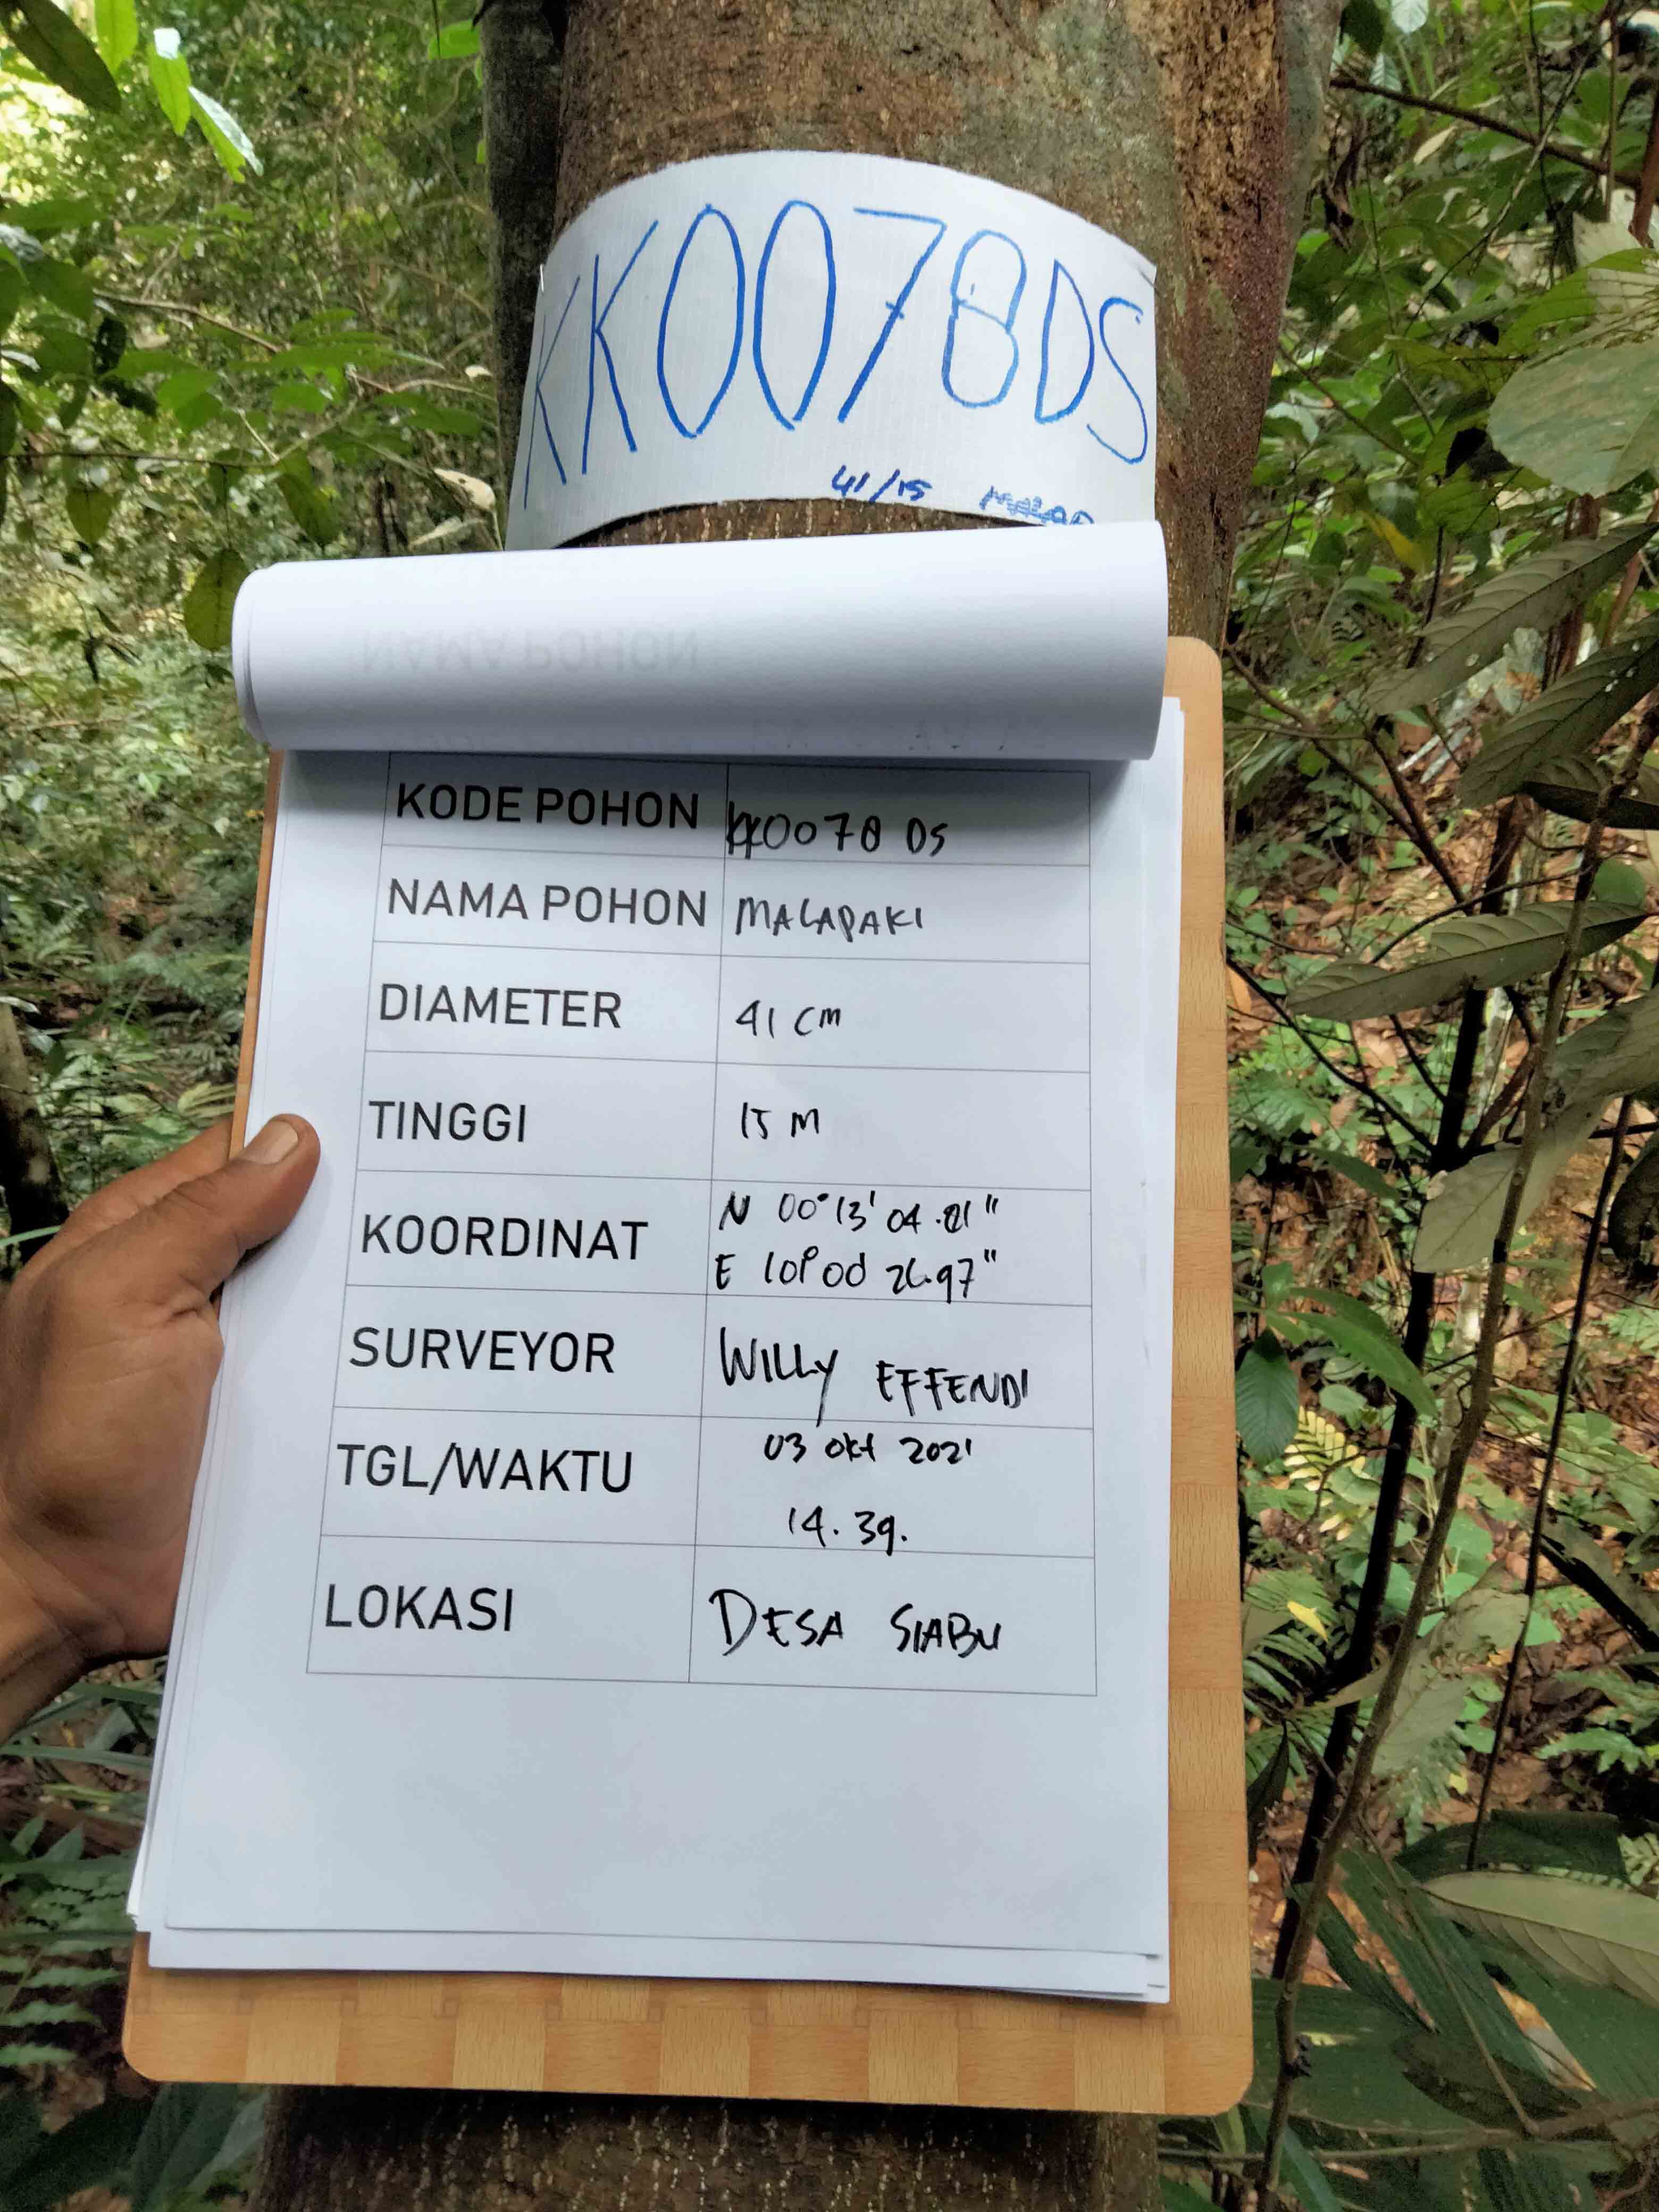 KK0078DS
41/15
NAMA POHON
KODE POHON KK0078 DS
NAMA POHON MALAPAKI
DIAMETER 41 CM
TINGGI 15 M
KOORDINAT N 00°13'04.81"
E
SURVEYOR WILLY EFFENDI
TGL/WAKTU 03 okt 2021
14.39.
LOKASI DESA SIABU